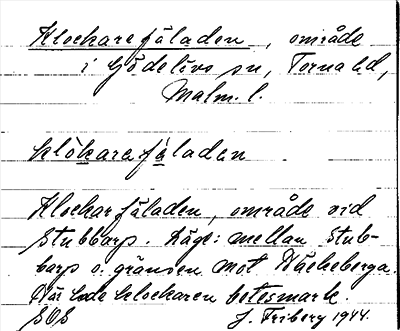 Klockarefäladen, område
i Gödelövs sn, Torna hd,
Malm. l.
klökarafäladan
Klockarfäladen, område vid
Stubbarp. Läge: mellan Stub-
barp o. gränsen mot Häckeberga.
Där hade klockaren betesmark.
SOS J. Friberg 1944.